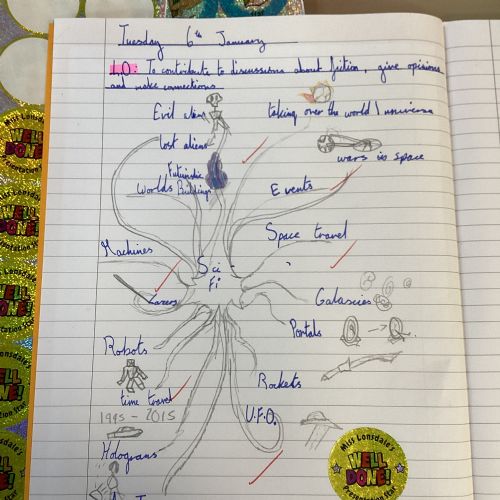 Tuesday 6th January
L.O: To contribute to discussions about fiction, give opinions
and make connections.
Evil aliens
taking over the world / universe
lost aliens
wars in space
Futuristic
Worlds Buildings
Events
Space travel
Machines
Sci -
Fi
Lazers
Galaxcies
Portals
Robots
Rockets
time travel
1995 - 2015
U.F.O.
Holograms
Miss Lonsdale's
WELL
DONE!
Miss Lonsdale's
WELL
DONE!
Presentation Star
Miss Lonsdale's
WELL
DONE!
Presentation Star
Miss Lonsdale's
WELL
DONE!
Presentation Star
Miss Lonsdale's
WELL
DONE!